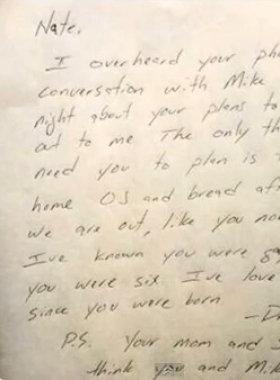 Nate,
I overheard your pho
conversation with Mike
night about your plans to
out to me The only th
need you to plan is
home OJ and bread aft
we are out, like you now
I've known you were ga
you were six I've love
since you were born
P.S. Your mom and I
think you and Mik